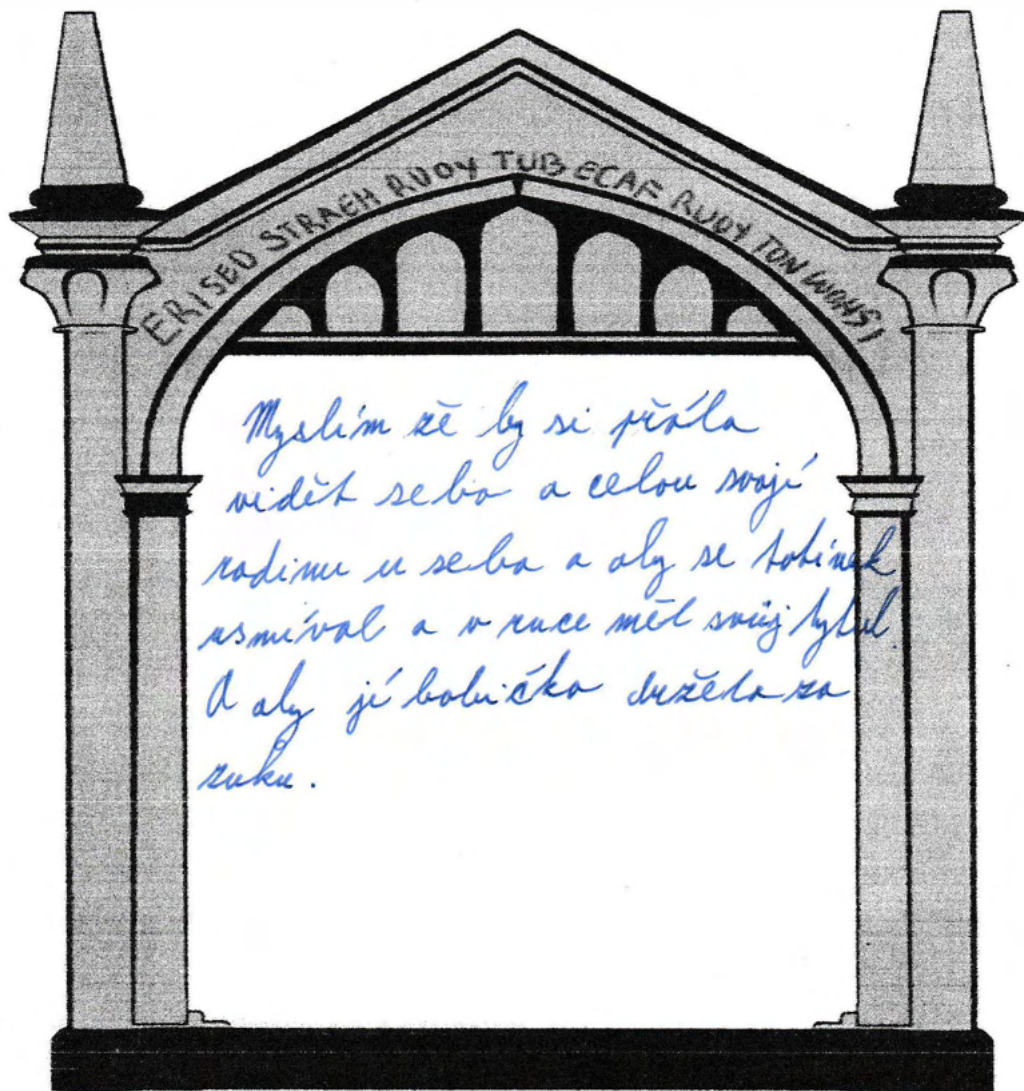 ERISED STRAEH RUOY TUB ECAF RUOY TON WOHSI
Myslím že by si přála
vidět sebe a celou svojí
rodinu u sebe a aby se tatínek
usmíval a v ruce měl svůj
A aby jí babička držela za
ruku.